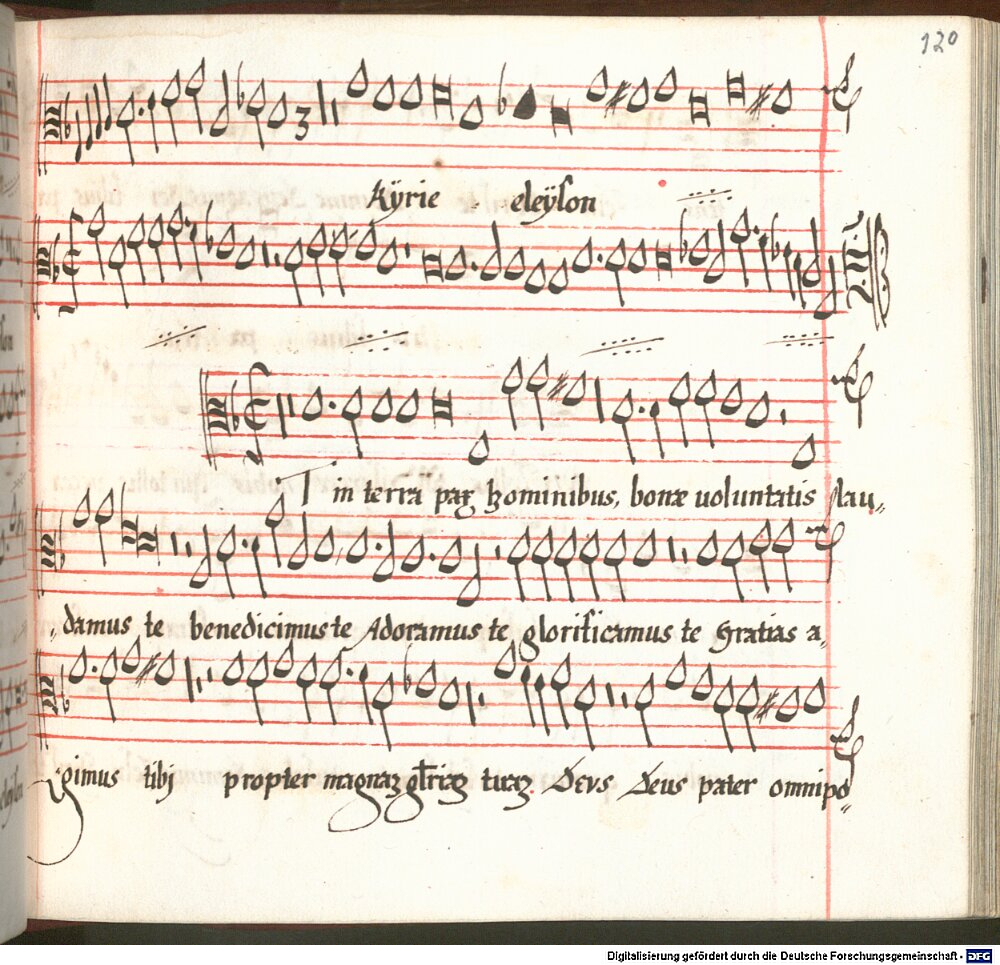 120
3
Kÿrie eleÿson
Et in terra pax hominibus, bonæ uoluntatis lau„
„damus te benedicimus te Adoramus te glorificamus te Gratias a„
gimus tibj propter magnaʒ gl̃riaʒ tuaʒ Deus Deus pater omnipo„
Digitalisierung gefördert durch die Deutsche Forschungsgemeinschaft - DFG